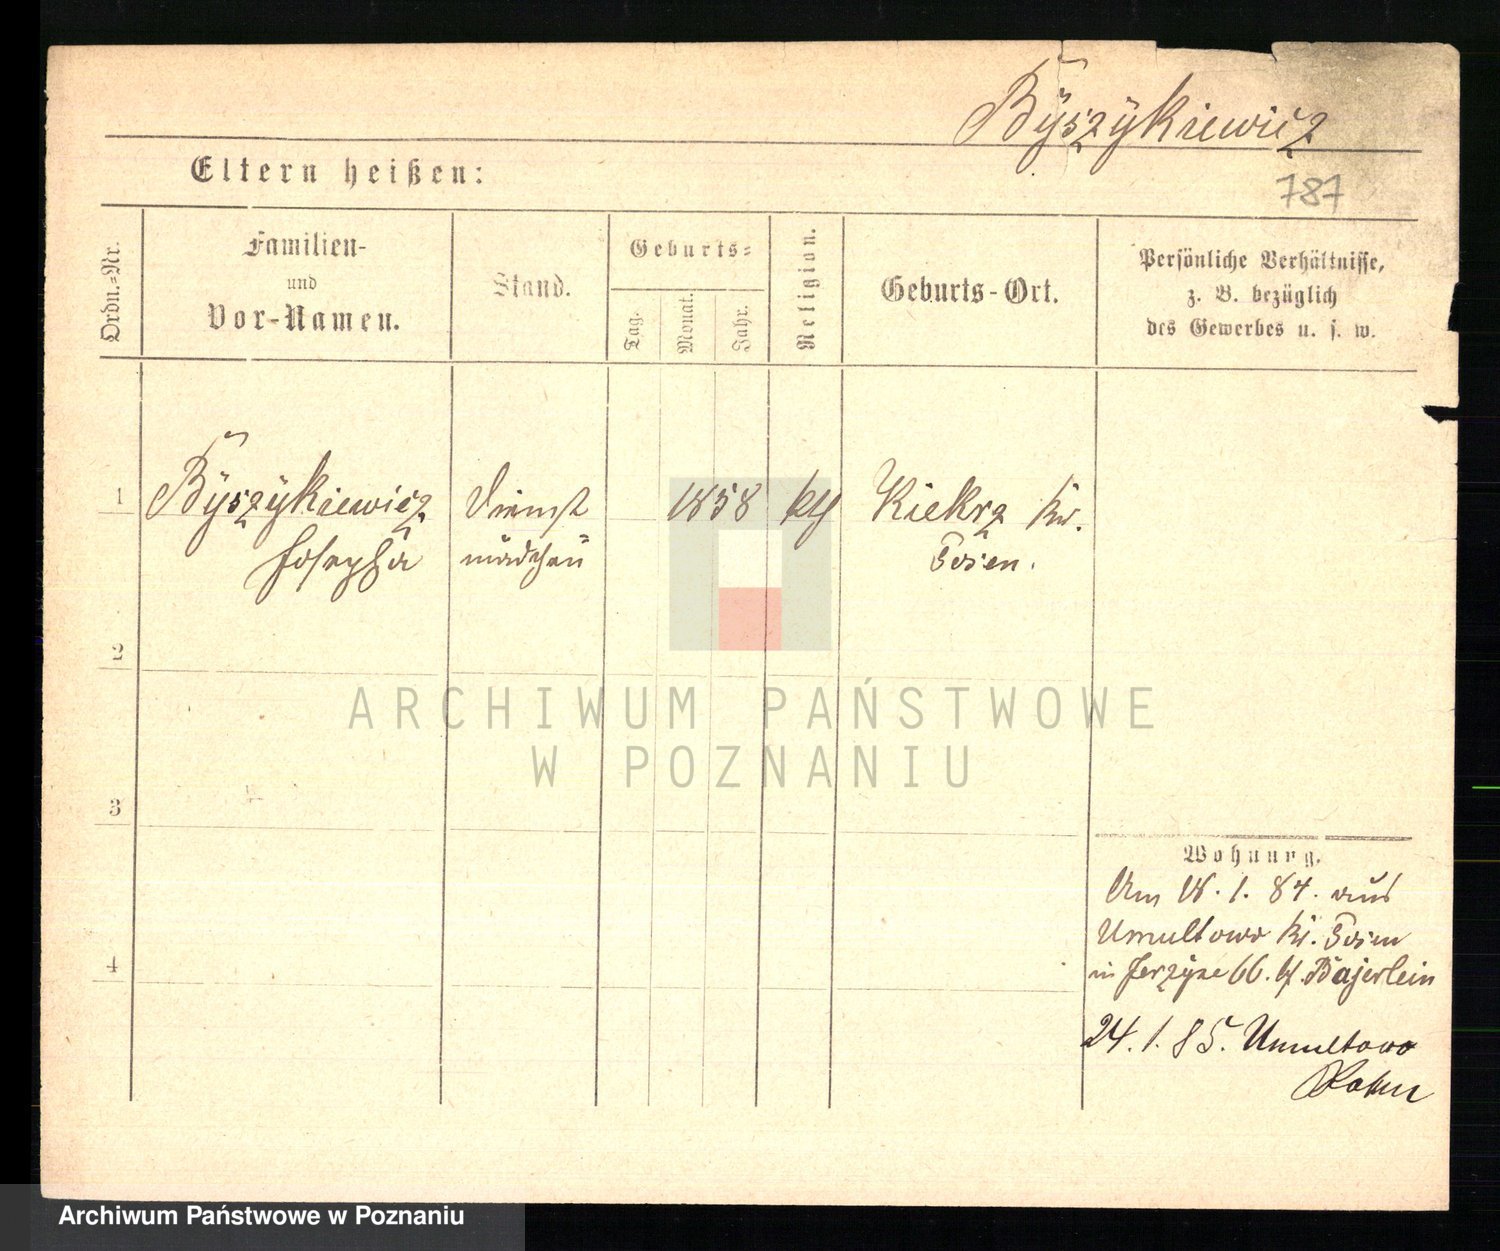 Byszykiewicz
Eltern heißen:
787
Ordn.-Nr.
Familien-
und
Vor-Namen.
Stand.
Geburts-
Tag.
Monat.
Jahr.
Religion.
Geburts-Ort.
Persönliche Verhältnisse,
z. B. bezüglich
des Gewerbes u. s. w.
1 Byszykiewicz Dienst 1858 kth Kiekrz Kr.
Josepha mädchen Posen.
2
3
4
Wohnung.
Am 18. 1. 84. aus
Umultowo Kr. Posen
in Jerzyce 66. bf. Bajerlein
24. 1. 85. Umultowo
ARCHIWUM PAŃSTWOWE
W POZNANIU
Archiwum Państwowe w Poznaniu